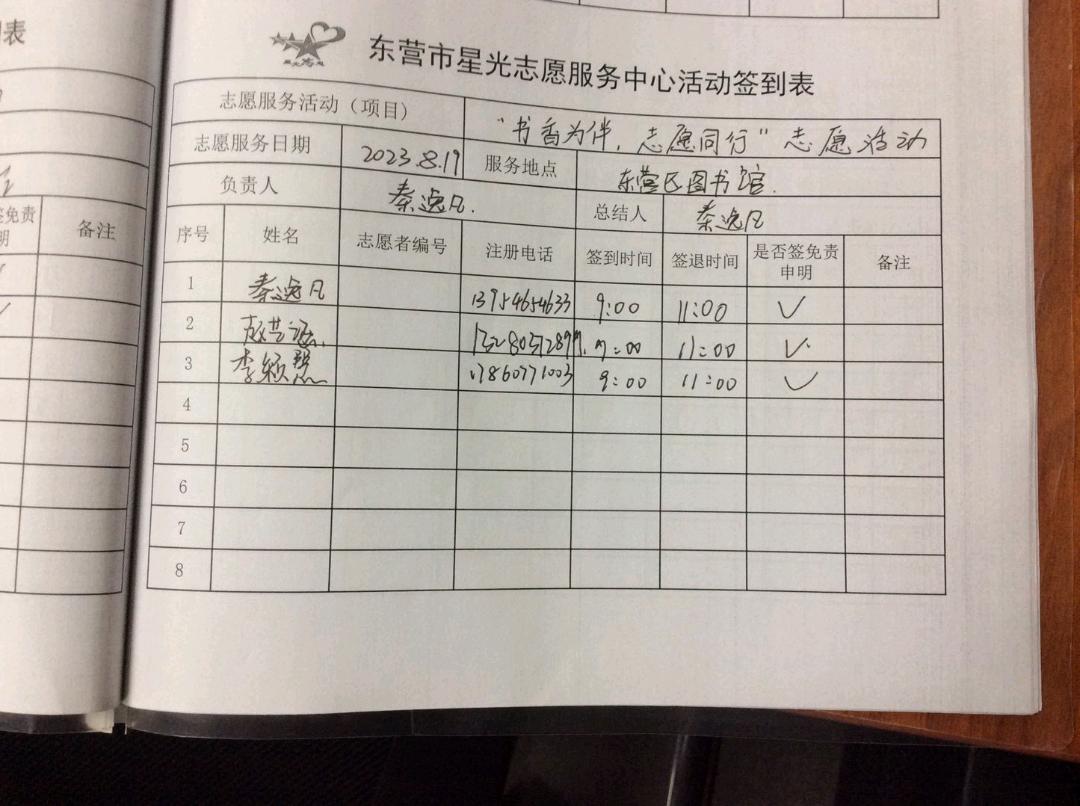 列表
签免责
明
备注
星光志愿
东营市星光志愿服务中心活动签到表
志愿服务活动（项目） “书香为伴，志愿同行”志愿活动
志愿服务日期 2023.8.19 服务地点 东营区图书馆.
负责人 秦逸凡. 总结人 秦逸凡
序号 姓名 志愿者编号 注册电话 签到时间 签退时间 是否签免责申明 备注
1 秦逸凡 13954654633 9:00 11:00 ✓
2 9:00 11:00 ✓
3 李颖慧 17860771003 9:00 11:00 ✓
4
5
6
7
8